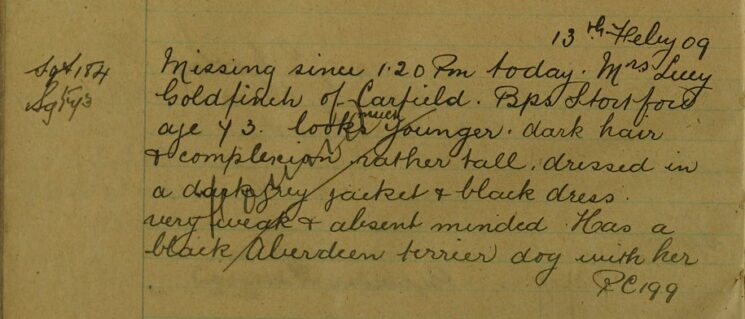 13th Feby 09
Sgt 184
Missing since 1.20 Pm today. Mrs Lucy
Goldfinch of Carfield. Bps Stortford
age 43. looks much younger. dark hair
& complexion rather tall. dressed in
a dark grey jacket & black dress.
very weak & absent minded Has a
black Aberdeen terrier dog with her
PC 199